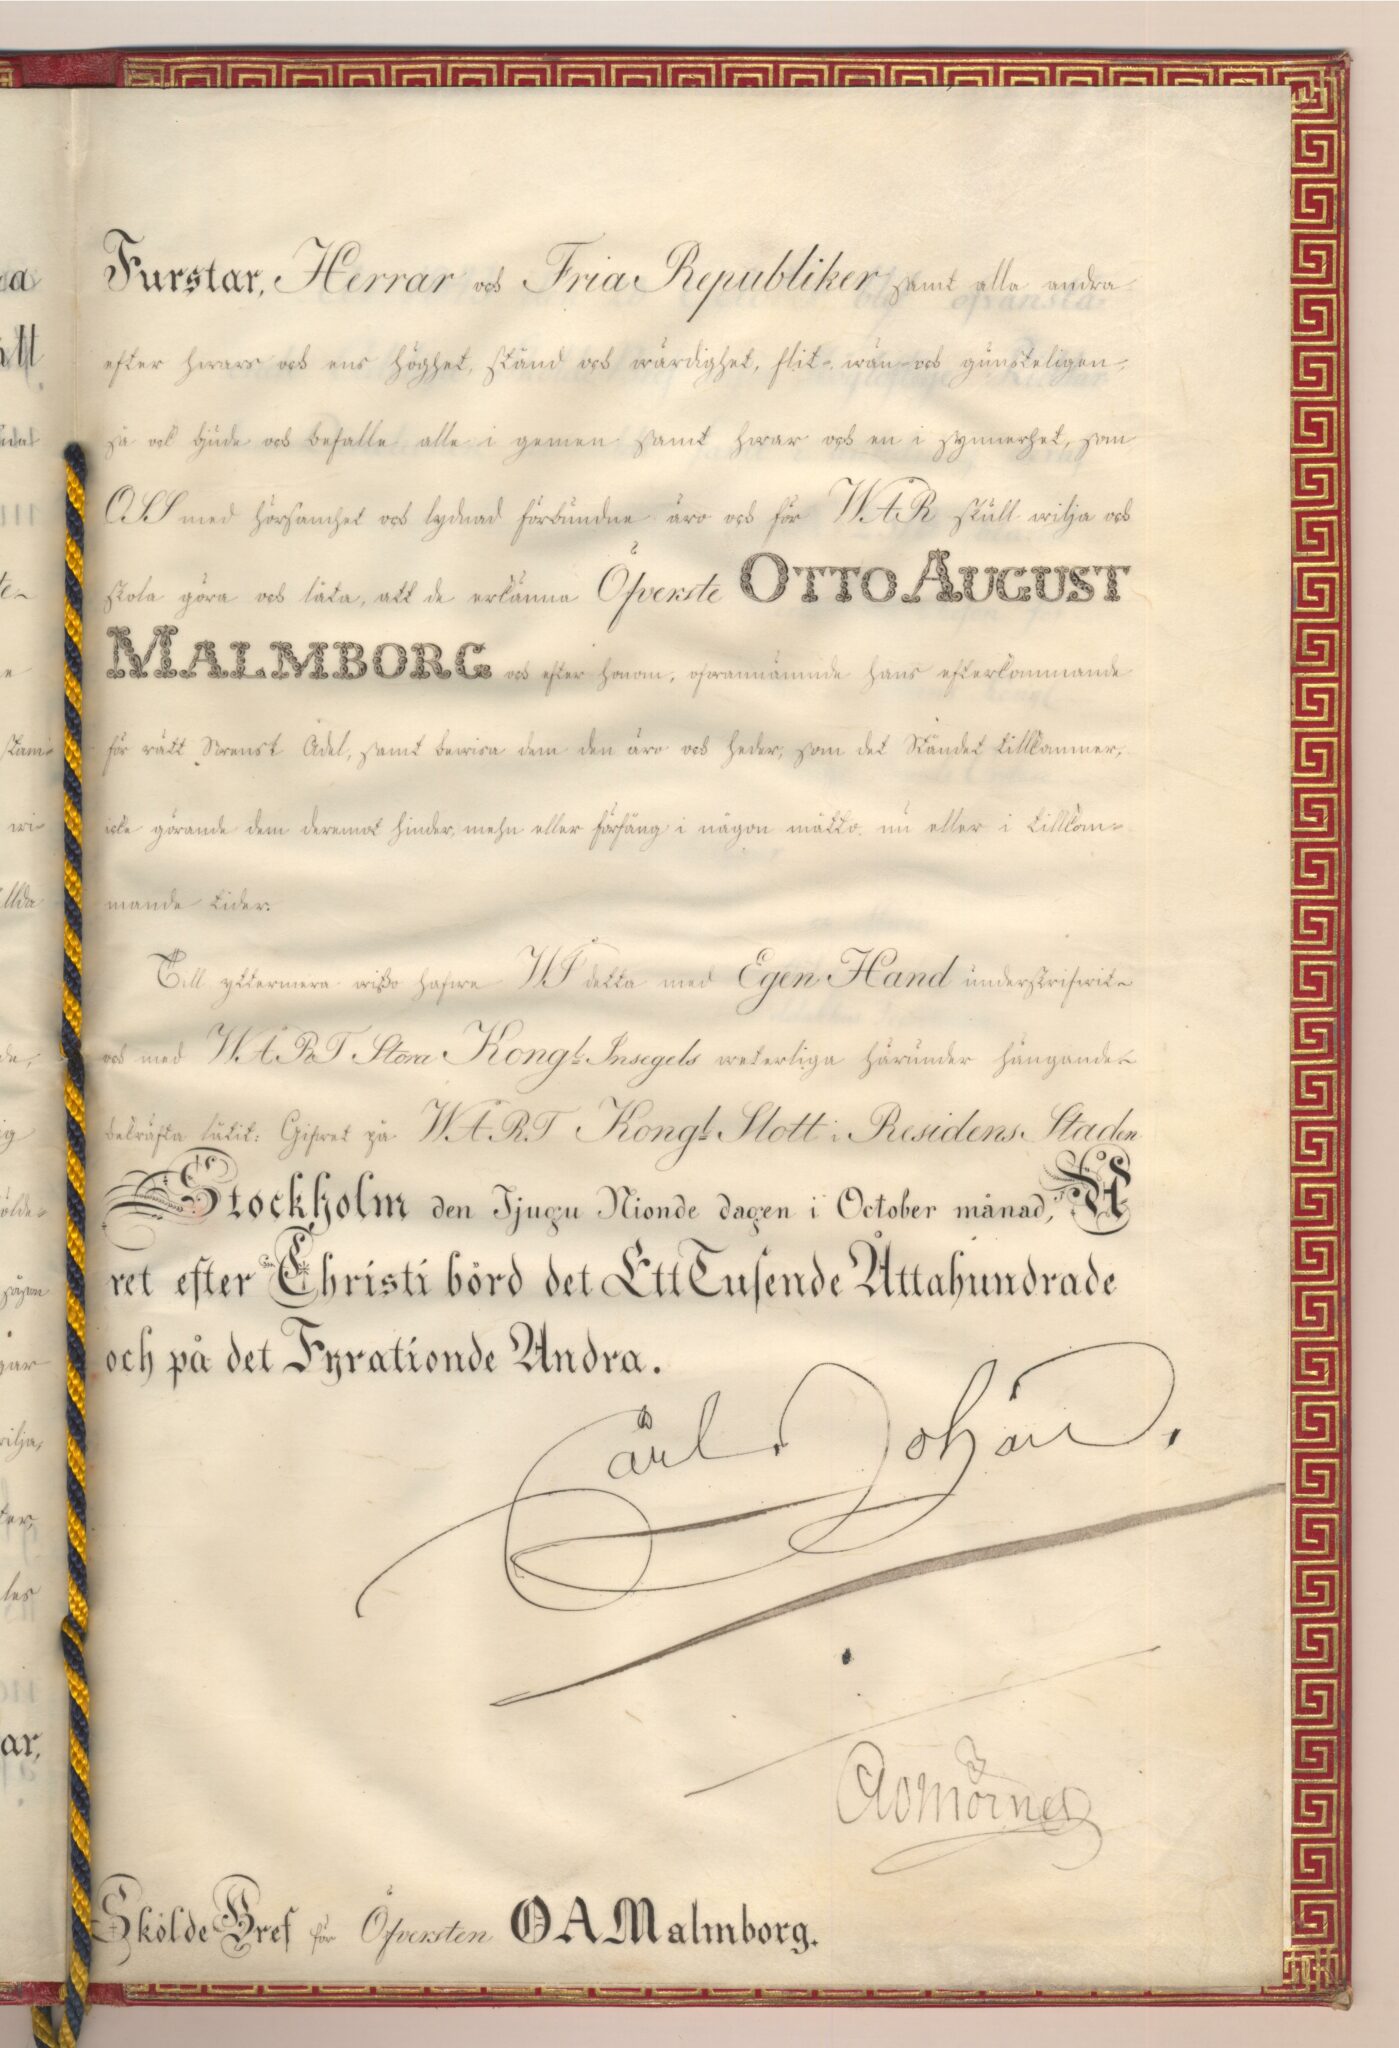 Furstar, Herrar och Fria Republiker samt alla andra
efter hwars och ens höghet, stånd och wärdighet, flit-, wän- och gunsteligen,
så ock bjude och befalle alle i gemen samt hwar och en i synnerhet, som
OSS med hörsamhet och lydnad förbundne äro och för WÅR skull wilja och
skola göra och låta, att de erkänna Öfverste OTTO AUGUST
MALMBORG och efter honom, ofwannämnde hans efterkommande
för rätt Svenst Adel, samt bewisa dem den äro och heder, som det Ståndet tillkommer,
icke görande dem deremot hinder, mehn eller förfång i någon måtto, nu eller i tillkom-
mande tider.
Till yttermera wißo hafwe WI detta med Egen Hand underskrifwit
och med WÅRT Stora Kongl. Insegels weterliga härunder hängande
bekräfta låtit: Gifwet på WÅRT Kongl. Slott i Residens Staden
Stockholm den Tjugu Nionde dagen i October månad, Å
ret efter Christi börd det Ett Tusende Åttahundrade
och på det Fyrationde Andra.
Carl Johan.
AOMörner
Skölde Bref för Öfversten O A Malmborg.